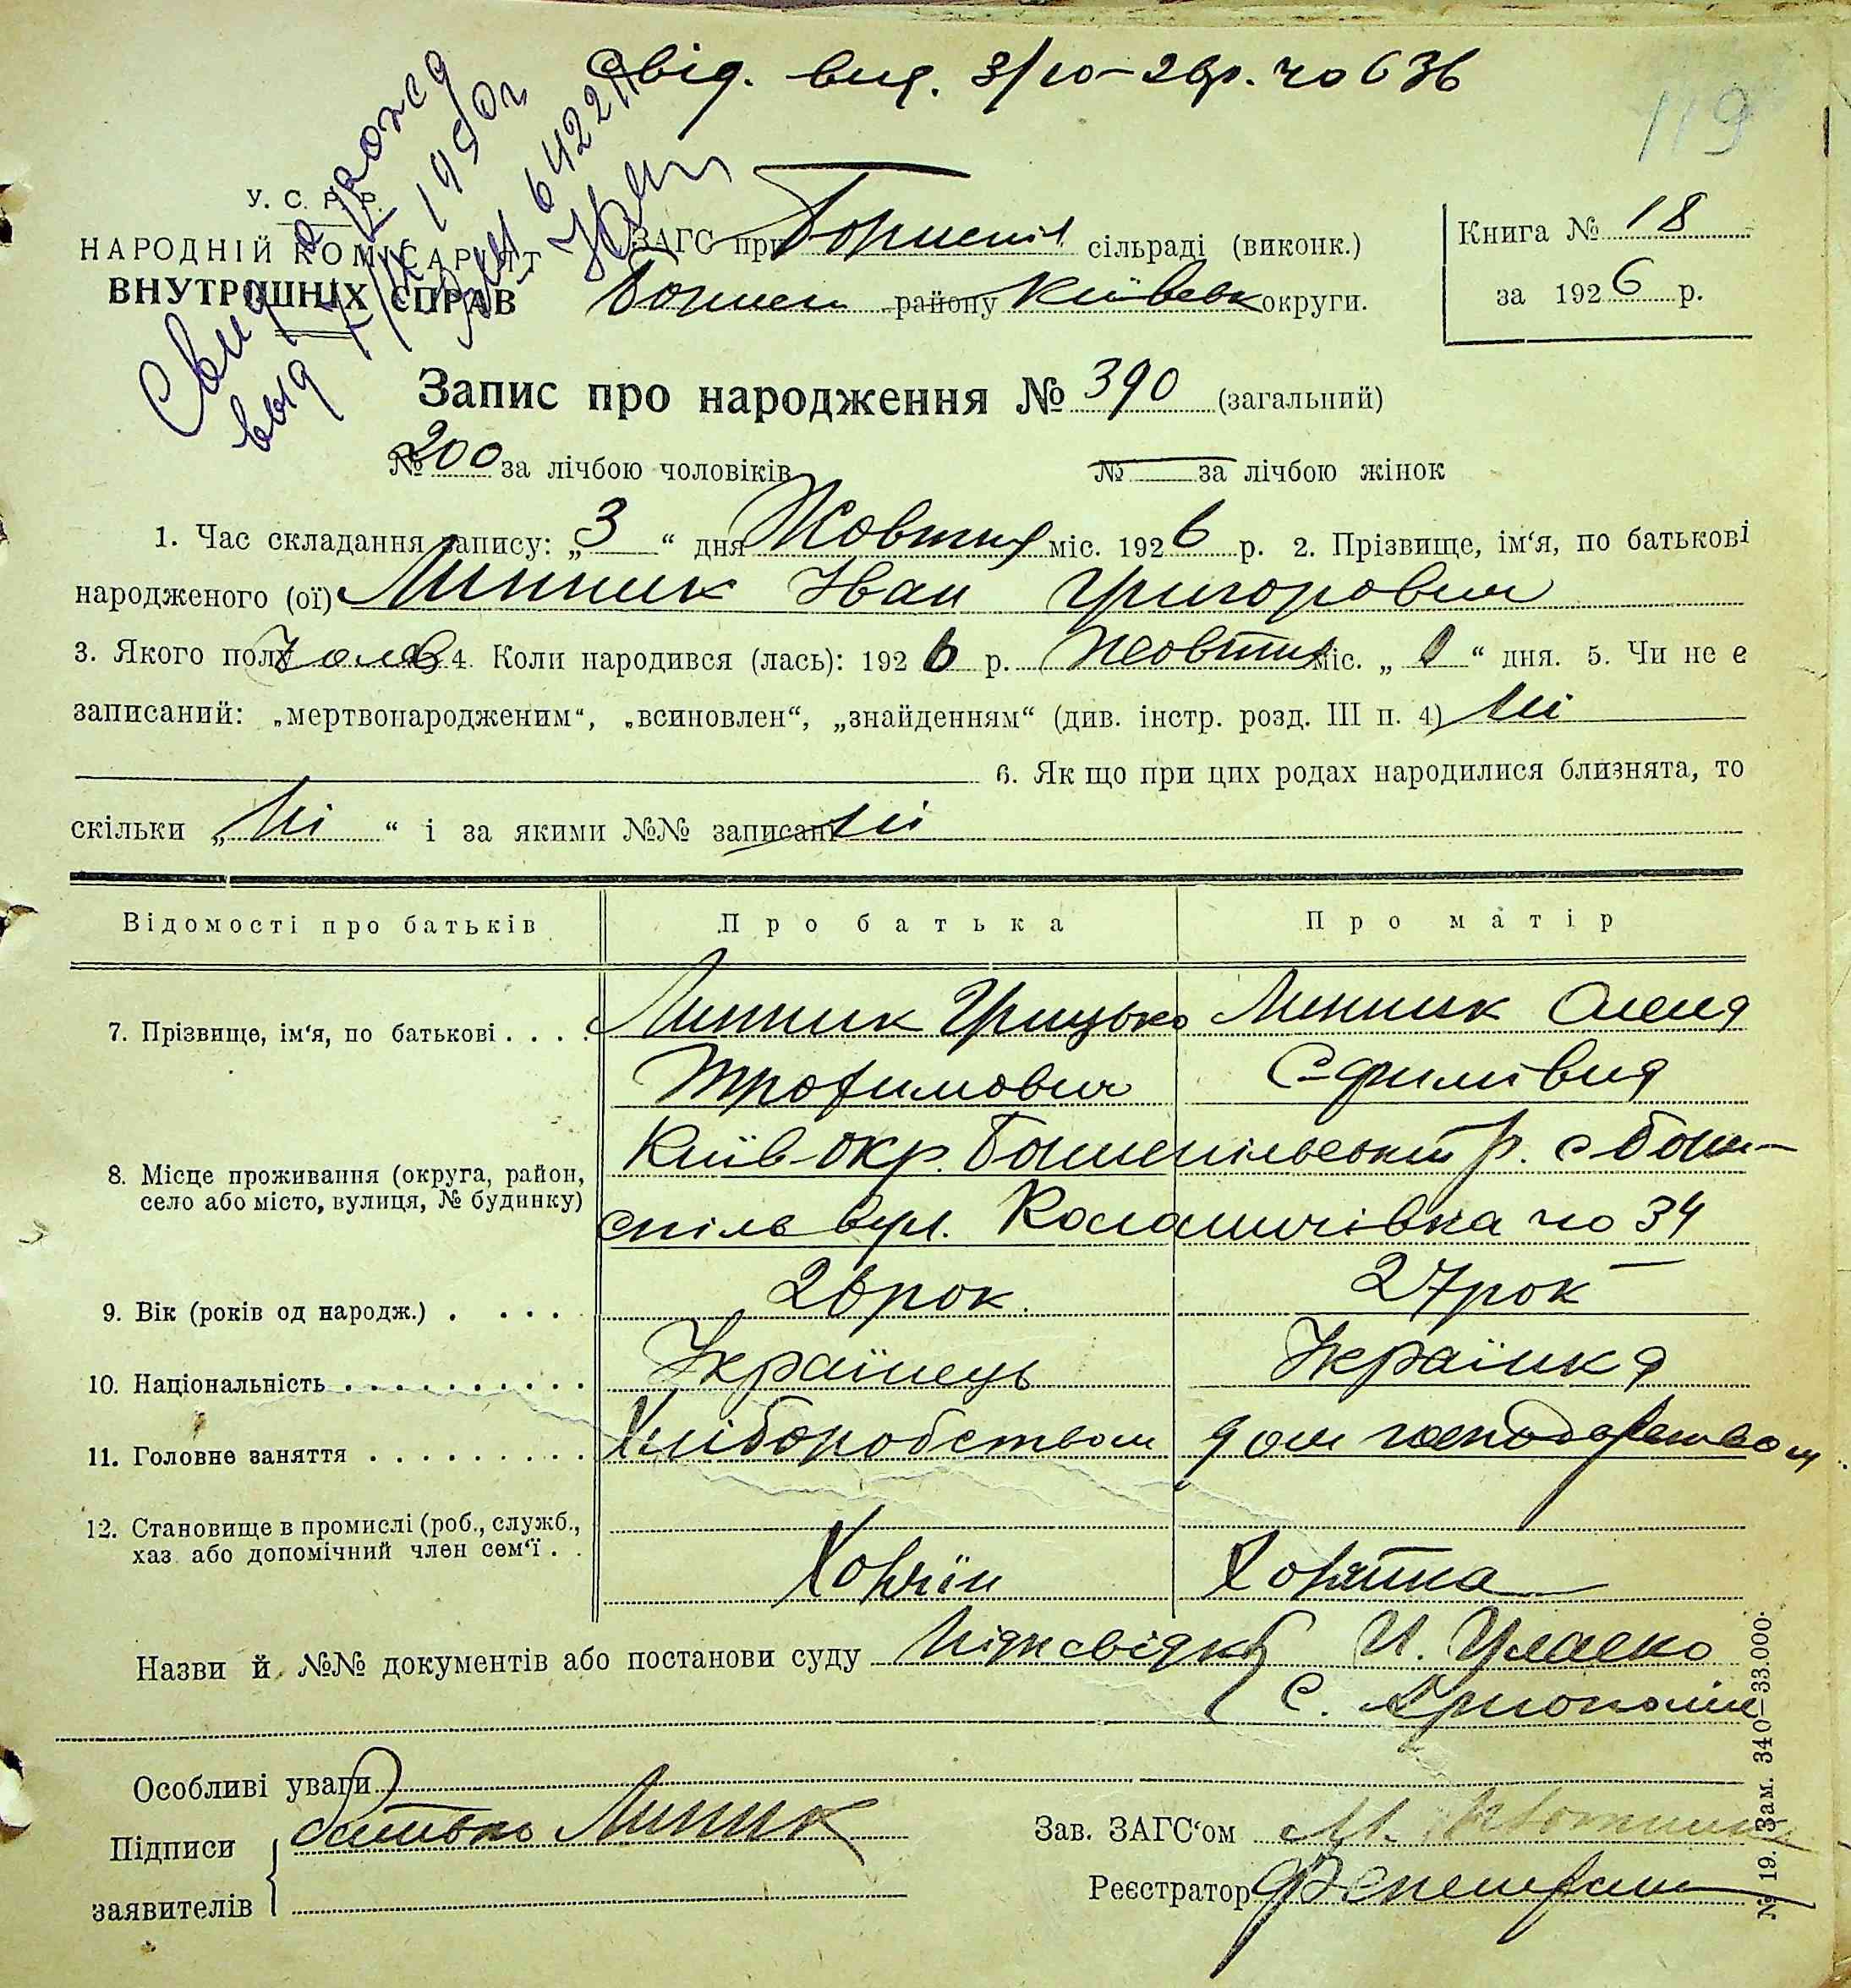 Свід. вид. 3/10-26р. но 636
119
Свид
выд 1950г
У. С. Р. Р.
НАРОДНІЙ КОМІСАРІЯТ
ВНУТРІШНІХ СПРАВ
ЗАГС при Бориспіл сільраді (виконк.)
Борисп району Київськ округи.
Книга № 18
за 1926 р.
Запис про народження № 390 (загальний)
№ 200 за лічбою чоловіків № — за лічбою жінок
1. Час складання запису: „3“ дня Жовтня міс. 1926 р. 2. Прізвище, ім‘я, по батькові
народженого (ої) Линник Іван Григорович
3. Якого полу чолов 4. Коли народився (лась): 1926 р. Жовтня міс. „ “ дня. 5. Чи не є
записаний: „мертвонародженим“, „всиновлен“, „знайденням“ (див. інстр. розд. III п. 4) Ні
6. Як що при цих родах народилися близнята, то
скільки „Ні“ і за якими №№ записані Ні
Відомості про батьків Про батька Про матір
7. Прізвище, ім‘я, по батькові . . . . Линник Грицько Линник Олена
Трофимович Єфимівна
8. Місце проживання (округа, район, Київ-окр. Бориспільський р. с Бори-
село або місто, вулиця, № будинку) спіль вул. но 34
9. Вік (років од народж.) . . . . 26 рок 27 рок
10. Національність . . . . . . . . . . Українець Українка
11. Головне заняття . . . . . . . . . Хліборобством дом господарством
12. Становище в промислі (роб., служб.,
хаз. або допомічний член сем‘ї . . Хазяїн Хазяйка
Назви й №№ документів або постанови суду
Особливі уваги
Підписи батько Линник
заявителів
Зав. ЗАГС‘ом М.
Реєстратор
№ 19. Зам. 340—33.000.